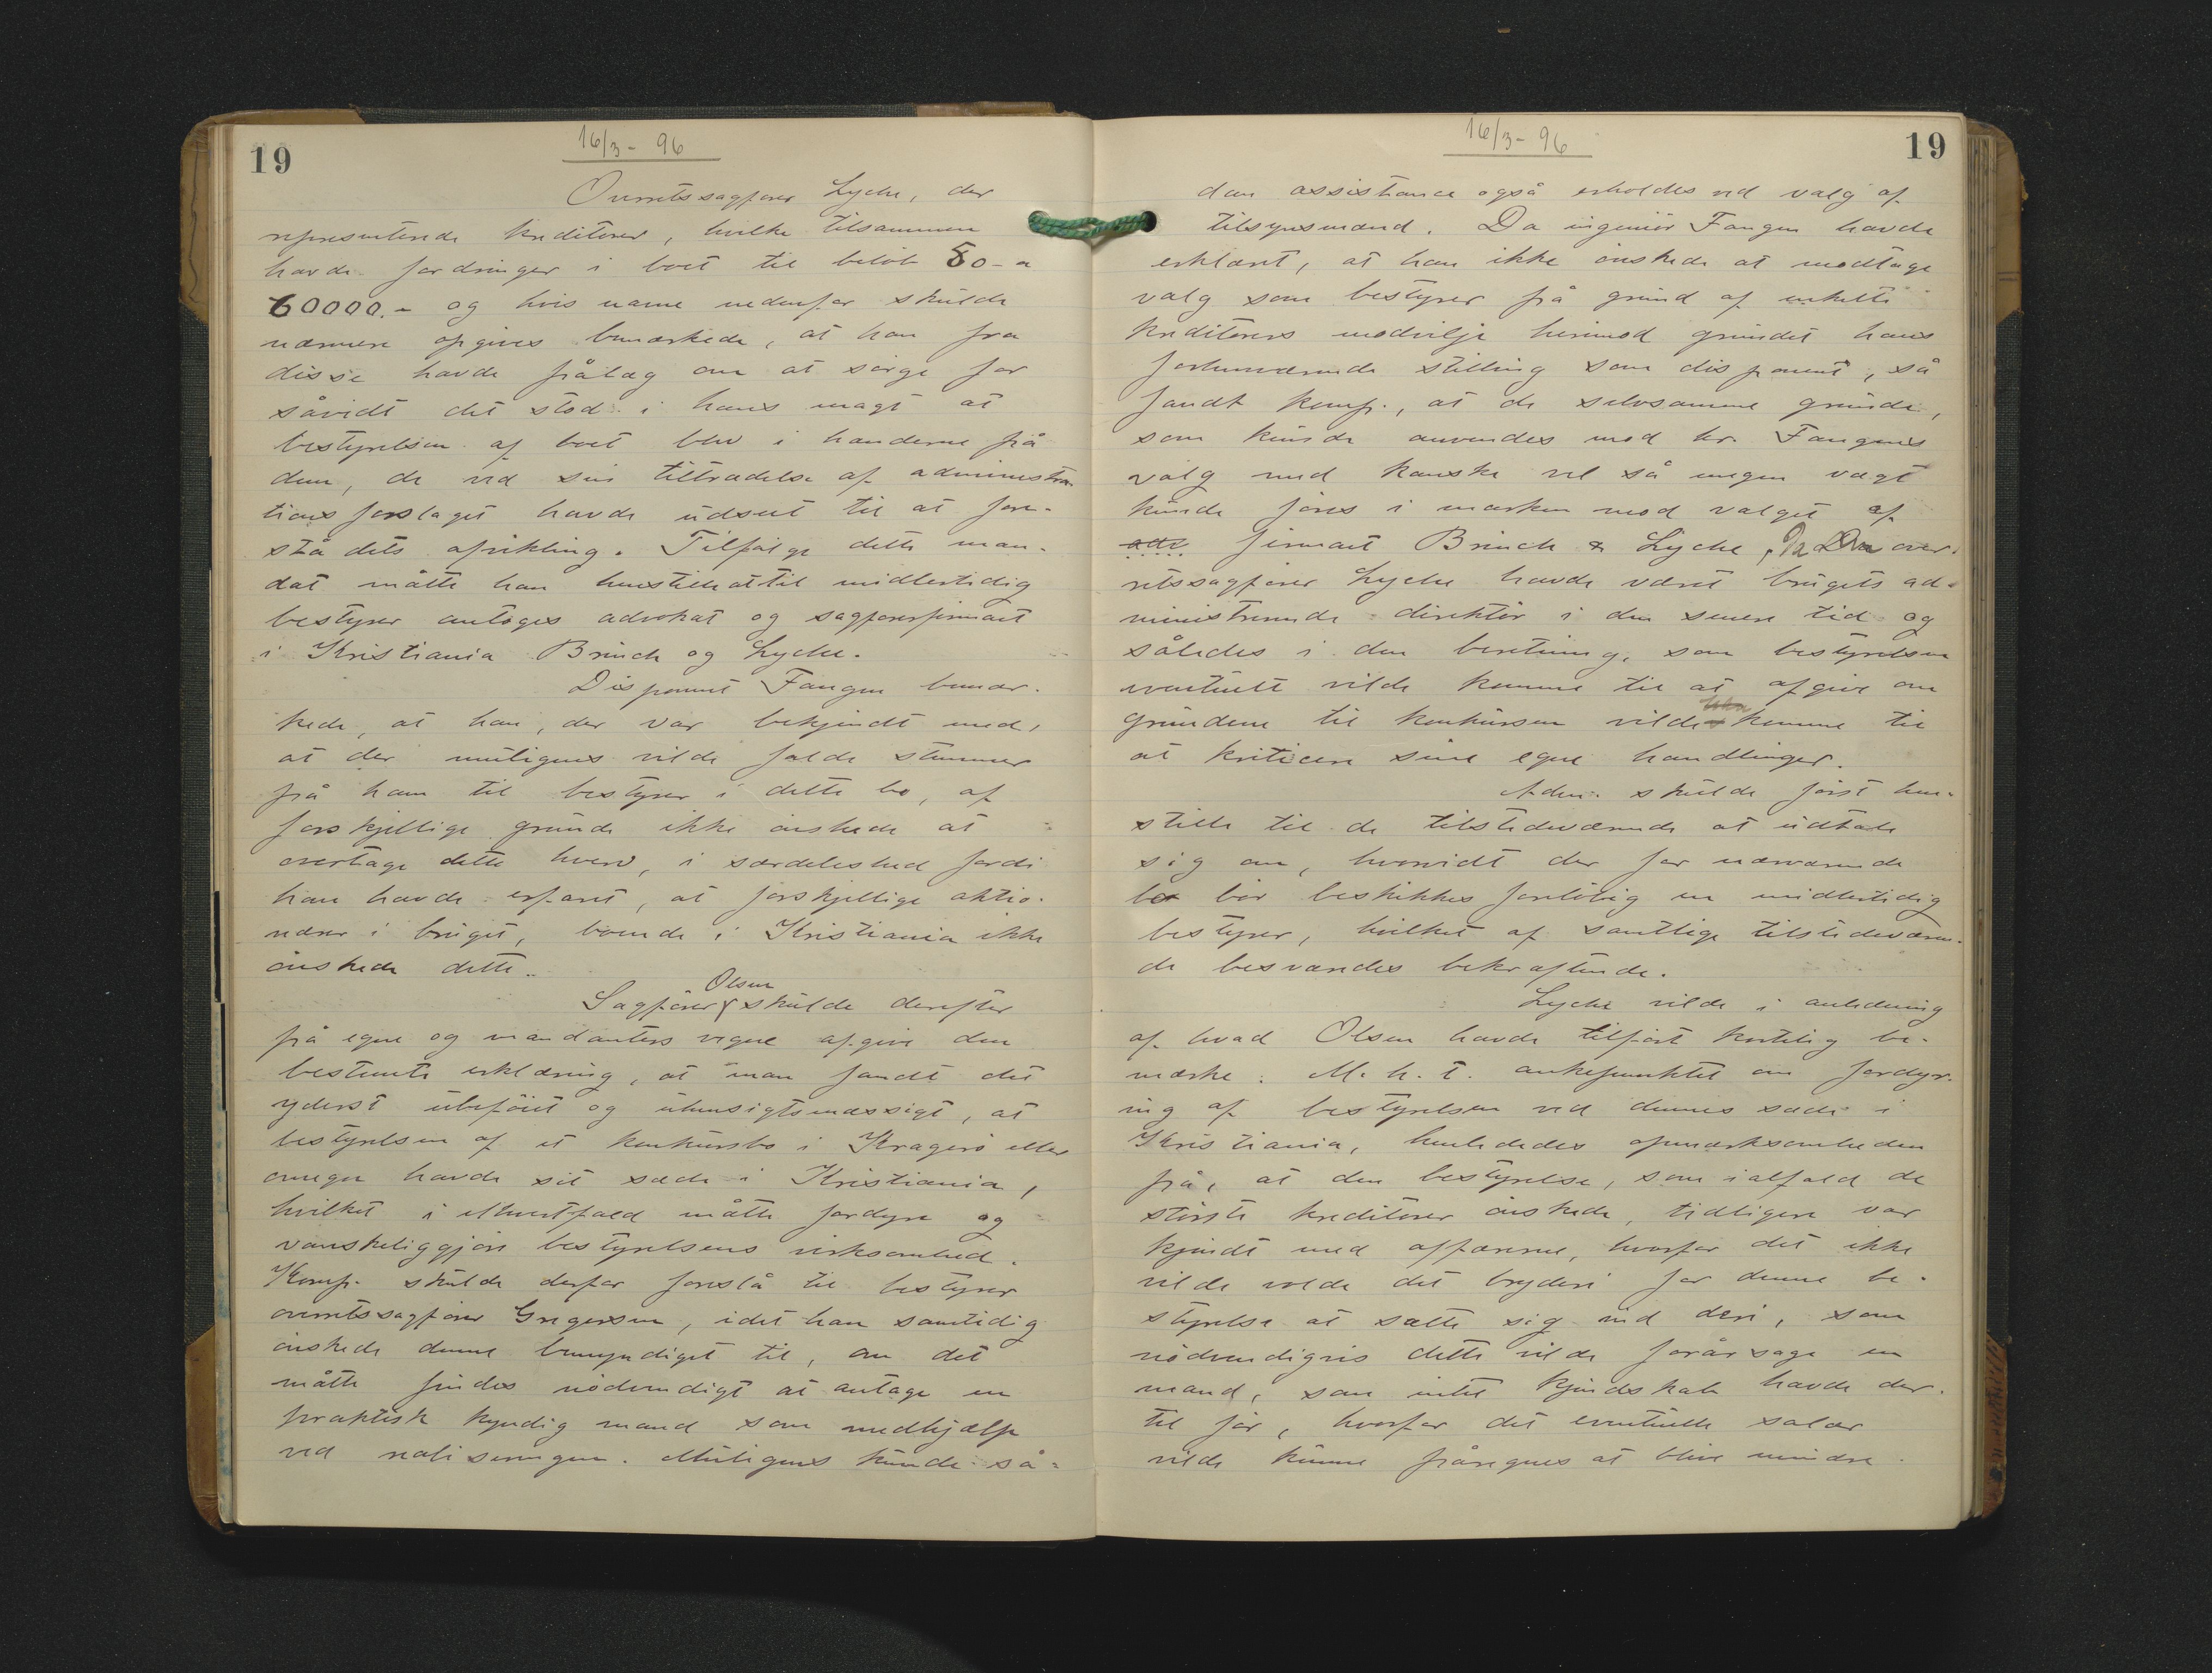 19
16/3 - 96
Overretssagfører Lycke, der
representerede kreditorer, hvilke tilsammen
havde fordringer i boet til beløb 50 - a
60000.- og hvis navne nedenfor skulde
nærmere opgives bemærkede, at han fra
disse havde pålæg om at sørge for
såvidt det stod i hans magt at
bestyrelsen af boet blev i hænderne på
dem, de ved sin tiltrædelse af administra-
tionsforslaget havde udseet til at fore-
stå dets afvikling. Tilfølge dette man-
dat måtte han henstille at til midlertidig
bestyrer antoges advokat og sagførerfirmaet
i Kristiania Brinch og Lycke.
Disponent Fangen bemær-
kede, at han, der var bekjendt med,
at der muligens vilde falde stemmer
på ham til bestyrer i dette bo, af
forskjellige grunde ikke ønskede at
overtage dette hverv, i særdeleshed fordi
han havde erfaret, at forskjellige aktio-
nærer i bruget, boende i Kristiania ikke
ønskede dette.
Olsen
Sagfører skulde derefter
på egne og mandanters vegne afgive den
bestemte erklæring, at man fandt det
yderst ubeføiet og uhensigtsmæssigt, at
bestyrelsen af et konkursbo i Kragerø eller
omegn havde sit sæde i Kristiania,
hvilket i ethvertfald måtte fordyre og
vanskeliggjøre bestyrelsens virksomhed.
Komp. skulde derfor foreslå til bestyrer
overretssagfører Gregersen, idet han samtidig
ønskede denne bemyndiget til, om det
måtte findes nødvendigt at antage en
praktisk kyndig mand som medhjælp
ved realiseringen. Muligens kunde så-
19
16/3 - 96
dan assistance også erholdes ved valg af
tilsynsmænd. Da ingeniør Fangen havde
erklæret, at han ikke ønskede at modtage
valg som bestyrer på grund af enkelte
kreditorers modvilje herimod grundet hans
forhenværende stilling som disponent, så
fandt komp., at de selvsamme grunde,
som kunde anvendes mod hr. Fangens
valg med kanske vel så megen vægt
kunde føres i marken mod valget af
firmaet Brinch & Lycke, Da over-
retssagfører Lycke havde været brugets ad-
ministrerende direktør i den senere tid og
således i den beretning, som bestyrelsen
eventuelt vilde komme til at afgive om
grundene til konkursen vilde komme til
at kritisere sine egne handlinger.
Adm. skulde først hen-
stille til de tilstedeværende at udtale
sig om, hvorvidt der for nærværende
bo bør beskikkes foreløbig en midlertidig
bestyrer, hvilket af samtlige tilstedeværen-
de besvaredes bekræftende.
Lycke vilde i anledning
af hvad Olsen havde tilført kortelig be-
mærke: M. h. t. ankepunktet om fordyr-
ing af bestyrelsen ved dennes sæde i
Kristiania, henlededes opmærksomheden
på, at den bestyrelse, som ialfald de
største kreditorer ønskede, tidligere var
kjendt med affærerne, hvorfor det ikke
vilde volde det bryderi for denne be-
styrelse at sætte sig ind deri, som
nødvendigvis dette vilde forårsage en
mand, som intet kjendskab havde der-
til før, hvorfor det eventuelle salær
vilde kunne påregnes at blive mindre